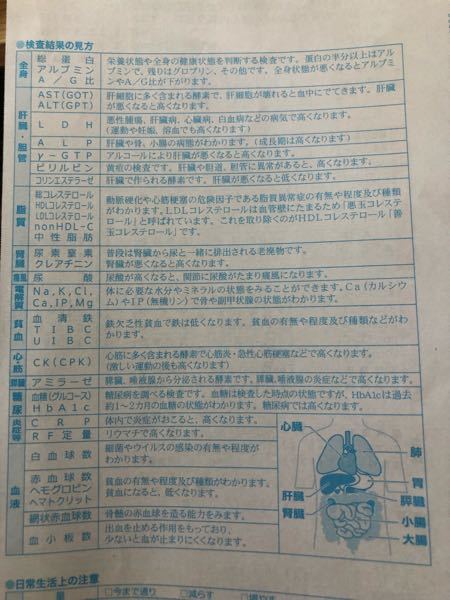 ●検査結果の見方
全身
総蛋白
アルブミン
A/G比
栄養状態や全身の健康状態を判断する検査です。蛋白の半分以上はアル
ブミンで、残りはグロブリン、その他です。全身状態が悪くなるとアルブミ
ンやA/G比が下がります。
肝臓・胆管
AST(GOT)
ALT(GPT)
肝細胞に多く含まれる酵素で、肝細胞が壊れると血中にでてきます。肝臓
が悪くなると高くなります。
LDH
悪性腫瘍、肝臓病、心臓病、白血病などの病気で高くなります。
(運動や妊娠、溶血でも高くなります)
ALP
肝臓や骨、小腸の病態がわかります。(成長期は高くなります)
γ-GTP
アルコールにより肝臓が悪くなると高くなります。
ビリルビン
黄疸の検査です。肝臓や胆道、胆管に異常があると、高くなります。
コリンエステラーゼ
肝臓で作られる酵素です。肝臓が悪くなると低くなります。
脂質
総コレステロール
HDLコレステロール
LDLコレステロール
nonHDL-C
中性脂肪
動脈硬化や心筋梗塞の危険因子である脂質異常症の有無や程度及び種類
がわかります。LDLコレステロールは血管壁にたまるため「悪玉コレステ
ロール」と呼ばれています。これを取り除くのがHDLコレステロール「善
玉コレステロール」です。
腎臓
尿素窒素
クレアチニン
普段は腎臓から尿と一緒に排出される老廃物です。
腎臓が悪くなると高くなります。
痛風
尿酸
尿酸が高くなると、関節に尿酸がたまり痛風になります。
電解質
Na,K,Cl,
Ca,IP,Mg
体に必要な水分やミネラルの状態をみることができます。Ca(カルシウ
ム)やIP(無機リン)で骨や副甲状腺の状態がわかります。
貧血
血清鉄
TIBC
UIBC
鉄欠乏性貧血で鉄は低くなります。貧血の有無や程度及び種類などがわ
かります。
心・筋
CK(CPK)
心筋に多く含まれる酵素で心筋炎・急性心筋梗塞などで高くなります。
(激しい運動の後も高くなります)
膵臓
アミラーゼ
膵臓、唾液腺から分泌される酵素です。膵臓、唾液腺の炎症などで高くなります。
糖尿
血糖(グルコース)
HbA1c
糖尿病を調べる検査です。血糖は検査した時点の状態ですが、HbA1cは過去
約1~2カ月の血糖の状態がわかります。糖尿病では高くなります。
炎症等
CRP
体内で炎症がおこると、高くなります。
RF定量
リウマチで高くなります。
血液
白血球数
細菌やウイルスの感染の有無や程度が
わかります。
赤血球数
ヘモグロビン
ヘマトクリット
貧血の有無や程度及び種類がわかります。
貧血になると、低くなります。
網状赤血球数
骨髄の赤血球を造る能力をみます。
血小板数
出血を止める作用をもっており、
少ないと血が止まりにくくなります。
心臓
肝臓
腎臓
肺
胃
膵臓
小腸
大腸
●日常生活上の注意
□今まで通り □減らす □増やす